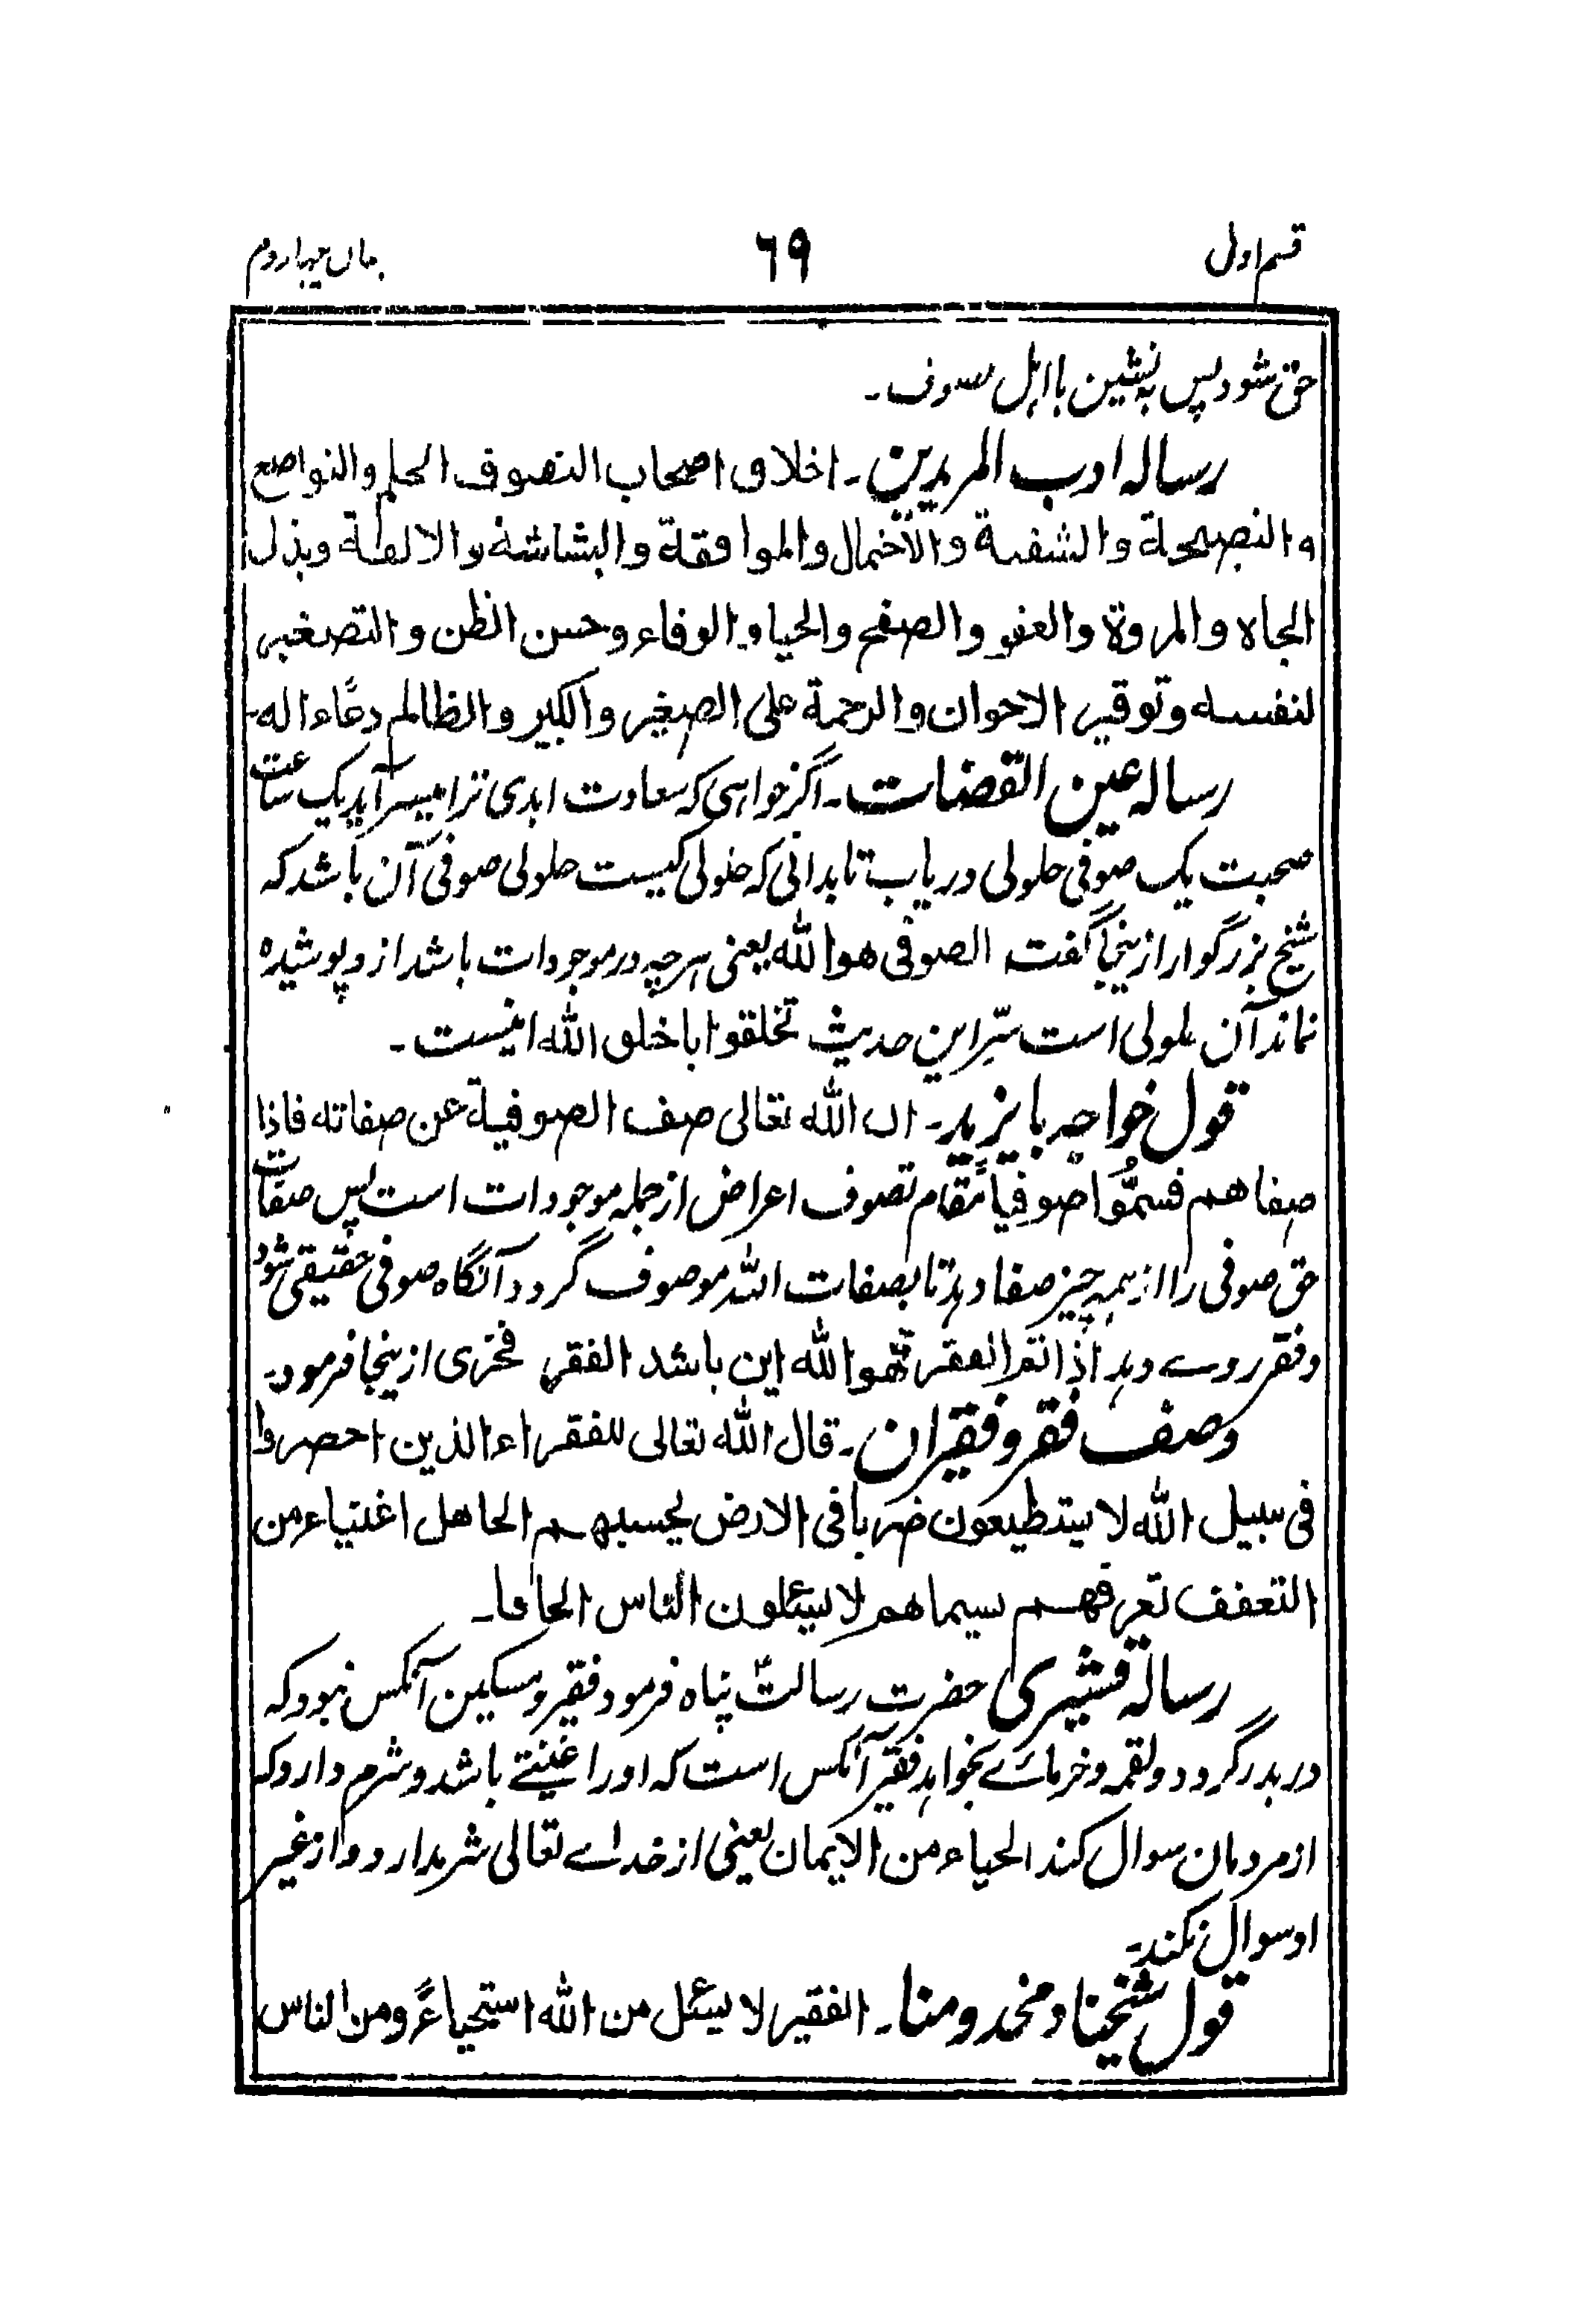 قسم اول
٦٩
حق شود پس بہ نشین با اہل
رسالہ ادب المریدین۔ اخلاق اصحاب التصوف الحلم والتواضع
والنصیحة والشفقة والاحتمال والموافقة والبشاشة والالفة وبذل
الجاه والمروة والعفو والصفح والحیاء والوفاء وحسن الظن والتصغیر
لنفسه وتوقیر الاخوان والرحمة علی الصغیر والکبیر والظالم دعاء اله۔
رسالہ عین القضات۔ اگر خواہی کہ سعادت ابدی ترا میسر آید یک ساعت
صحبت یک صوفی حلولی دریاب تا بدانی کہ حلولی کیست حلولی صوفی آن باشد کہ
شیخ بزرگوار ازینجا گفت الصوفی هو الله یعنی ہرچہ در موجودات باشد از و پوشیدہ
نماند آن حلولی است سّر این حدیث تخلقوا باخلق الله اینست۔
قول خواجہ بایزید۔ ان الله تعالی صف الصوفیة عن صفاته فاذا
صفاهم فسمُّوا صوفیاً مقام تصوف اعراض از جملہ موجودات است پس صفات
حق صوفی را از ہمہ چیز صفا دہد تا بصفات اللہ موصوف گردد آنگاہ صوفی حقیقی شود
و فقر روے دہد اذا تم الفقر فهو الله این باشد الفقر فخری ازینجا فرمود۔
وصف فقر و فقیران۔ قال الله تعالی للفقراء الذین احصروا
فی سبیل الله لا یستطیعون ضربا فی الارض یحسبهم الجاهل اغنیاء من
التعفف تعرفهم بسیماهم لا یسئلون الناس الحافا۔
رسالۂ قشیری حضرت رسالتؐ پناہ فرمود فقیر و مسکین آنکس نبود کہ
دربدر گردد و لقمہ و خرمائے بخواہد فقیر آنکس است کہ اورا غنیتے باشد و شرم دارد کہ
از مردمان سوال کند الحیاء من الایمان یعنی از خداے تعالی شرم دارد و از غیر
او سوال نکند۔
قول شیخنا و مخدومنا۔ الفقیر لا یسئل من الله استحیاءً ومن الناس